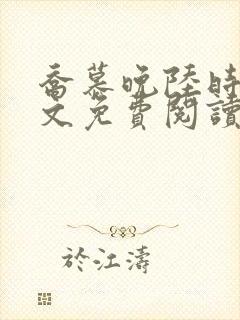 喬慕晚陸時
文免費閱讀
於江濤